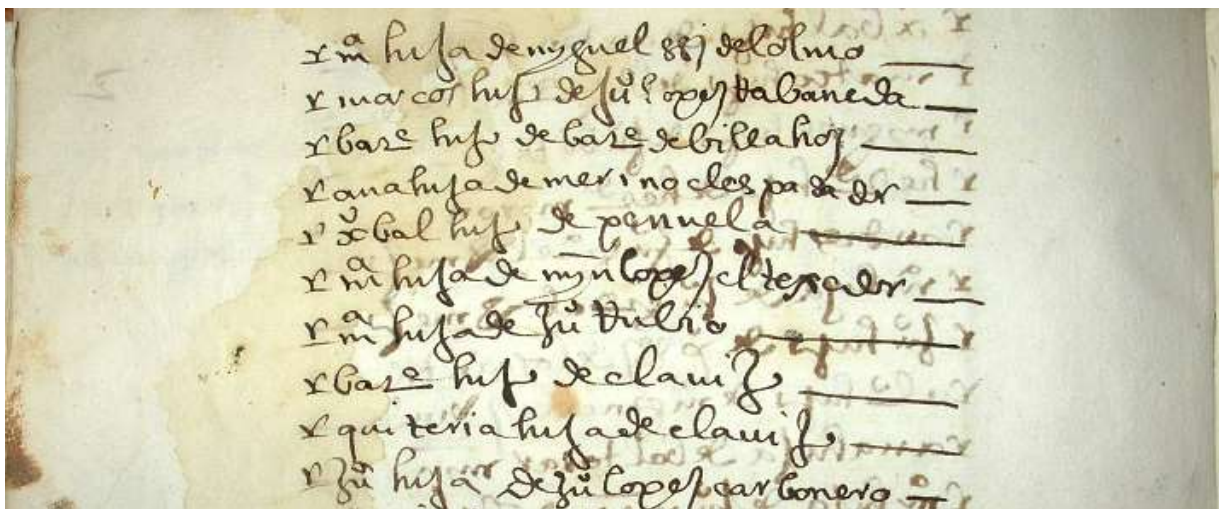 r mª hija de myguel ssz del olmo
r marcos hijo de juº lopez Rabaneda
r bare hijo de bare de billahoz
r ana hija de merino el espadador
r xºbal hijo de penuela
r mª hija de myn lopez el texedor
r mª hija de juº Rubio
r bare hijo de clavijo
r quiteria hija de clavijo
r juº hijo de juº lopez carbonero